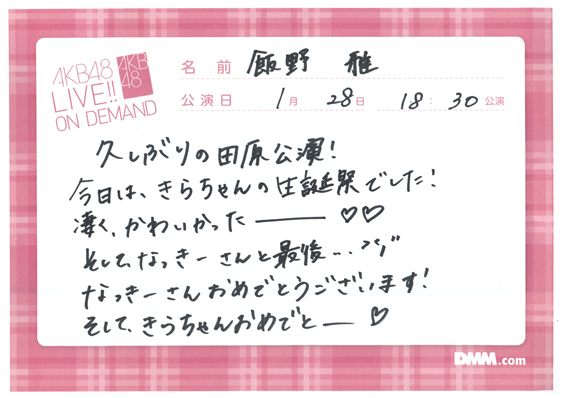 AKB48
LIVE!!
ON DEMAND
AKB
48
名前 飯野 雅
公演日 1月 28日 18:30公演
久しぶりの田原公演!
今日は、きらちゃんの生誕祭でした!
凄く、かわいかった――♡♡
そして、なっきーさんと最後...
なっきーさんおめでとうございます!
そして、きらちゃんおめでと―♡
DMM.com